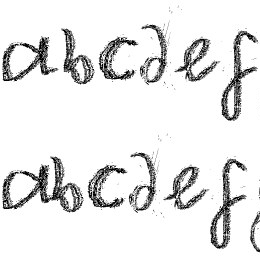 abcdef
abcdef